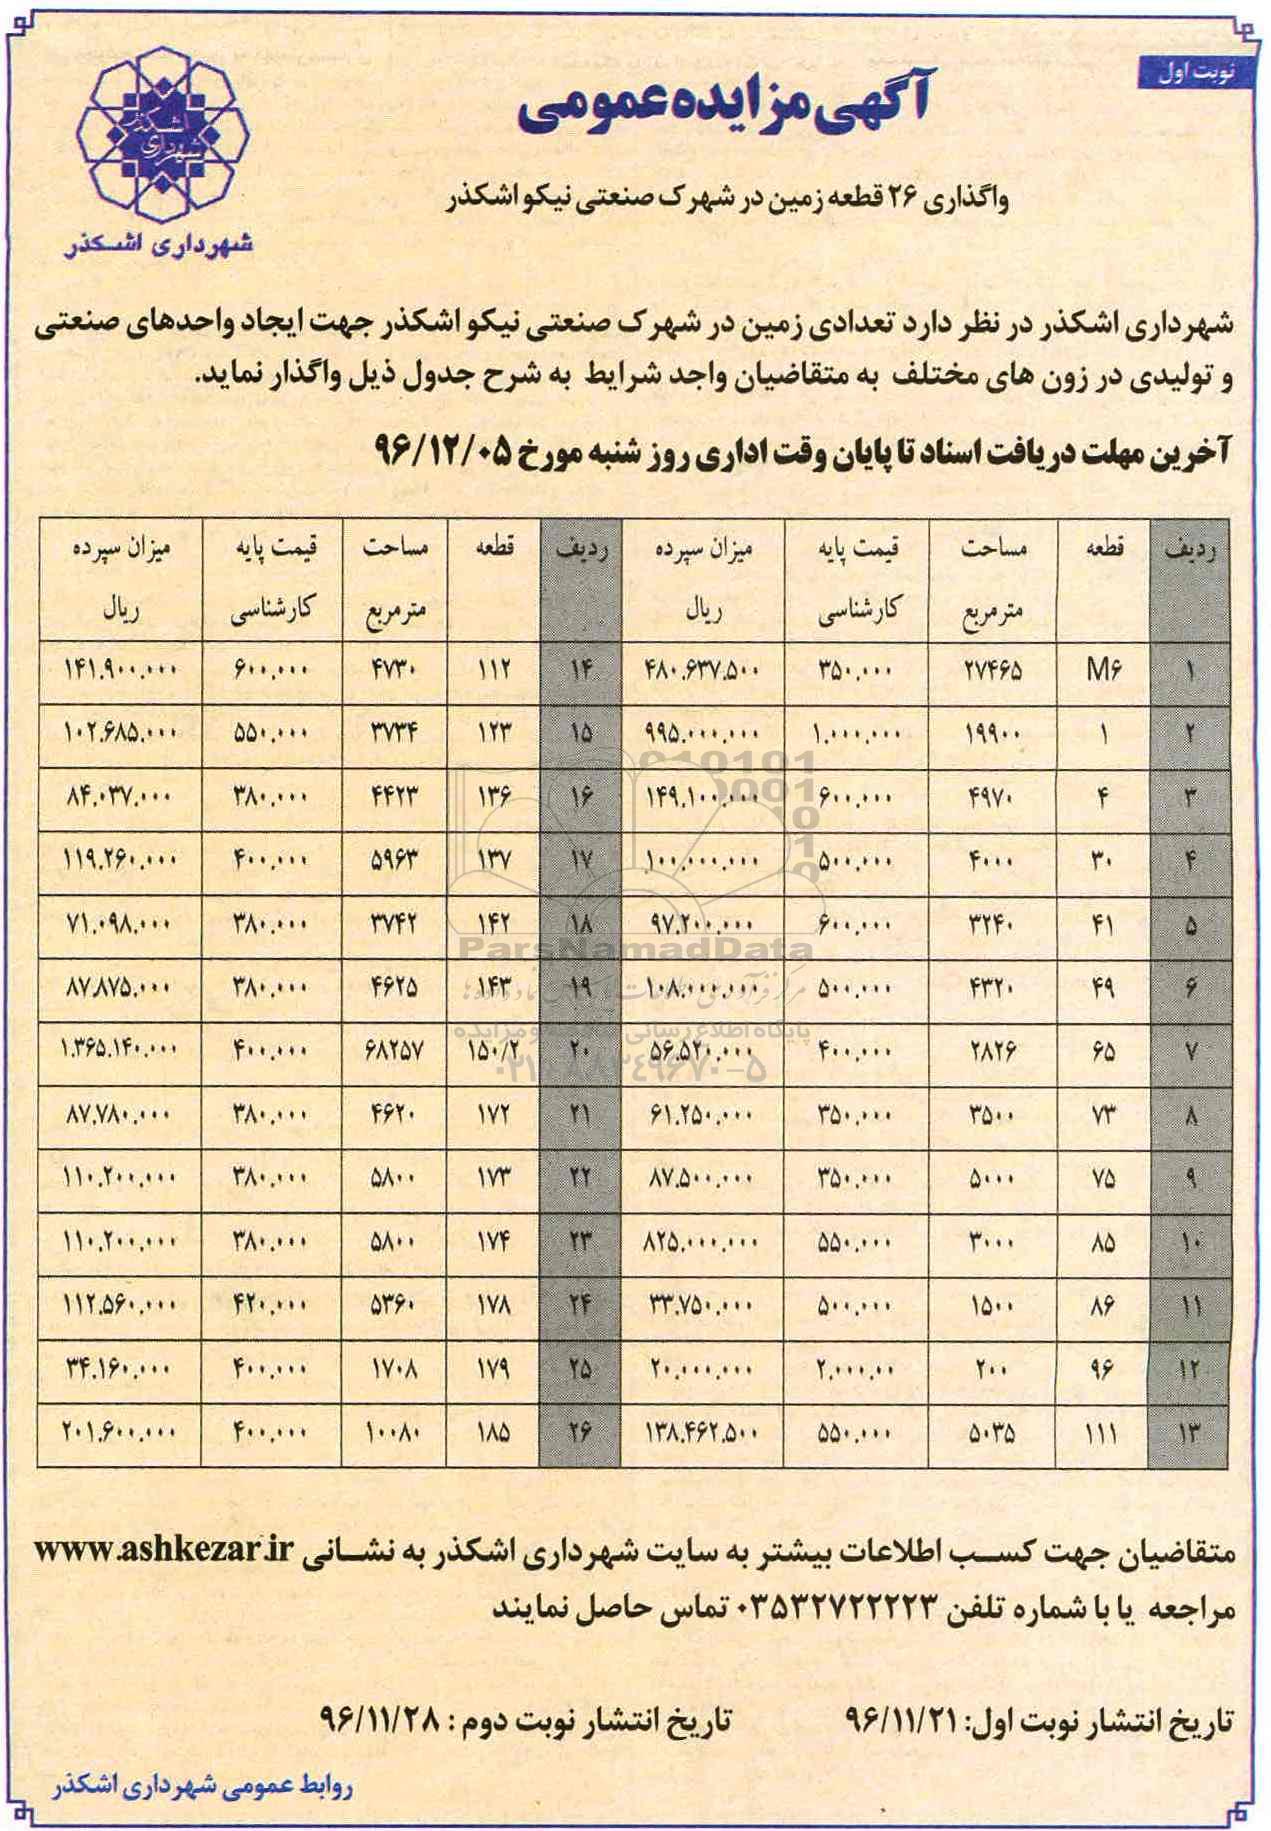 نوبت اول
آگهی مزایده عمومی
اشکذر
شهرداری
شهرداری اشکذر
واگذاری ۲۶ قطعه زمین در شهرک صنعتی نیکو اشکذر
شهرداری اشکذر در نظر دارد تعدادی زمین در شهرک صنعتی نیکو اشکذر جهت ایجاد واحدهای صنعتی
و تولیدی در زون های مختلف به متقاضیان واجد شرایط به شرح جدول ذیل واگذار نماید.
آخرین مهلت دریافت اسناد تا پایان وقت اداری روز شنبه مورخ ۹۶/۱۲/۰۵
ردیف قطعه مساحت قیمت پایه میزان سپرده ردیف قطعه مساحت قیمت پایه میزان سپرده
مترمربع کارشناسی ریال مترمربع کارشناسی ریال
۱ M۶ ۲۷۴۶۵ ۳۵۰.۰۰۰ ۴۸۰.۶۳۷.۵۰۰ ۱۴ ۱۱۲ ۴۷۳۰ ۶۰۰.۰۰۰ ۱۴۱.۹۰۰.۰۰۰
۲ ۱ ۱۹۹۰۰ ۱.۰۰۰.۰۰۰ ۹۹۵.۰۰۰.۰۰۰ ۱۵ ۱۲۳ ۳۷۳۴ ۵۵۰.۰۰۰ ۱۰۲.۶۸۵.۰۰۰
۳ ۴ ۴۹۷۰ ۶۰۰.۰۰۰ ۱۴۹.۱۰۰.۰۰۰ ۱۶ ۱۳۶ ۴۴۲۳ ۳۸۰.۰۰۰ ۸۴.۰۳۷.۰۰۰
۴ ۳۰ ۴۰۰۰ ۵۰۰.۰۰۰ ۱۰۰.۰۰۰.۰۰۰ ۱۷ ۱۳۷ ۵۹۶۳ ۴۰۰.۰۰۰ ۱۱۹.۲۶۰.۰۰۰
۵ ۴۱ ۳۲۴۰ ۶۰۰.۰۰۰ ۹۷.۲۰۰.۰۰۰ ۱۸ ۱۴۲ ۳۷۴۲ ۳۸۰.۰۰۰ ۷۱.۰۹۸.۰۰۰
۶ ۴۹ ۴۳۲۰ ۵۰۰.۰۰۰ ۱۰۸.۰۰۰.۰۰۰ ۱۹ ۱۴۳ ۴۶۲۵ ۳۸۰.۰۰۰ ۸۷.۸۷۵.۰۰۰
۷ ۶۵ ۲۸۲۶ ۴۰۰.۰۰۰ ۵۶.۵۲۰.۰۰۰ ۲۰ ۱۵۰/۲ ۶۸۲۵۷ ۴۰۰.۰۰۰ ۱.۳۶۵.۱۴۰.۰۰۰
۸ ۷۳ ۳۵۰۰ ۳۵۰.۰۰۰ ۶۱.۲۵۰.۰۰۰ ۲۱ ۱۷۲ ۴۶۲۰ ۳۸۰.۰۰۰ ۸۷.۷۸۰.۰۰۰
۹ ۷۵ ۵۰۰۰ ۳۵۰.۰۰۰ ۸۷.۵۰۰.۰۰۰ ۲۲ ۱۷۳ ۵۸۰۰ ۳۸۰.۰۰۰ ۱۱۰.۲۰۰.۰۰۰
۱۰ ۸۵ ۳۰۰۰ ۵۵۰.۰۰۰ ۸۲۵.۰۰۰.۰۰۰ ۲۳ ۱۷۴ ۵۸۰۰ ۳۸۰.۰۰۰ ۱۱۰.۲۰۰.۰۰۰
۱۱ ۸۶ ۱۵۰۰ ۵۰۰.۰۰۰ ۳۳.۷۵۰.۰۰۰ ۲۴ ۱۷۸ ۵۳۶۰ ۴۲۰.۰۰۰ ۱۱۲.۵۶۰.۰۰۰
۱۲ ۹۶ ۲۰۰ ۲.۰۰۰.۰۰ ۲۰.۰۰۰.۰۰۰ ۲۵ ۱۷۹ ۱۷۰۸ ۴۰۰.۰۰۰ ۳۴.۱۶۰.۰۰۰
۱۳ ۱۱۱ ۵۰۳۵ ۵۵۰.۰۰۰ ۱۳۸.۴۶۲.۵۰۰ ۲۶ ۱۸۵ ۱۰۰۸۰ ۴۰۰.۰۰۰ ۲۰۱.۶۰۰.۰۰۰
ParsNamadData
پایگاه اطلاع رسانی مناقصه و مزایده
۰۲۱-۸۸۳۴۹۶۷۰-۵
متقاضیان جهت کسب اطلاعات بیشتر به سایت شهرداری اشکذر به نشانی www.ashkezar.ir
مراجعه یا با شماره تلفن ۰۳۵۳۲۷۲۲۲۲۳ تماس حاصل نمایند
تاریخ انتشار نوبت اول: ۹۶/۱۱/۲۱ تاریخ انتشار نوبت دوم : ۹۶/۱۱/۲۸
روابط عمومی شهرداری اشکذر